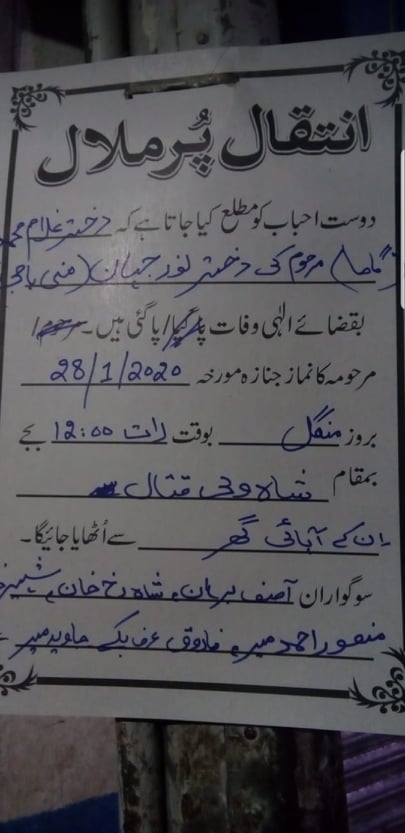 انتقال پُر ملال
دوست احباب کو مطلع کیا جاتا ہے کہ دختر غلام محمد
مرحوم کی دختر نور جہان (منی باجی
بقضائے الٰہی وفات پا گیا/پا گئی ہیں۔ مرحوم/
مرحومہ کا نماز جنازہ مورخہ 28/1/2020
بروز منگل بوقت رات 12:00 بجے
بمقام شاہ ولی قتال
ان کے آبائی گھر سے اُٹھایا جائیگا۔
سوگواران آصف برہان، شاہ رخ خان، شبیر
منصور احمد میر، فاروق عرف بگے جاوید میر